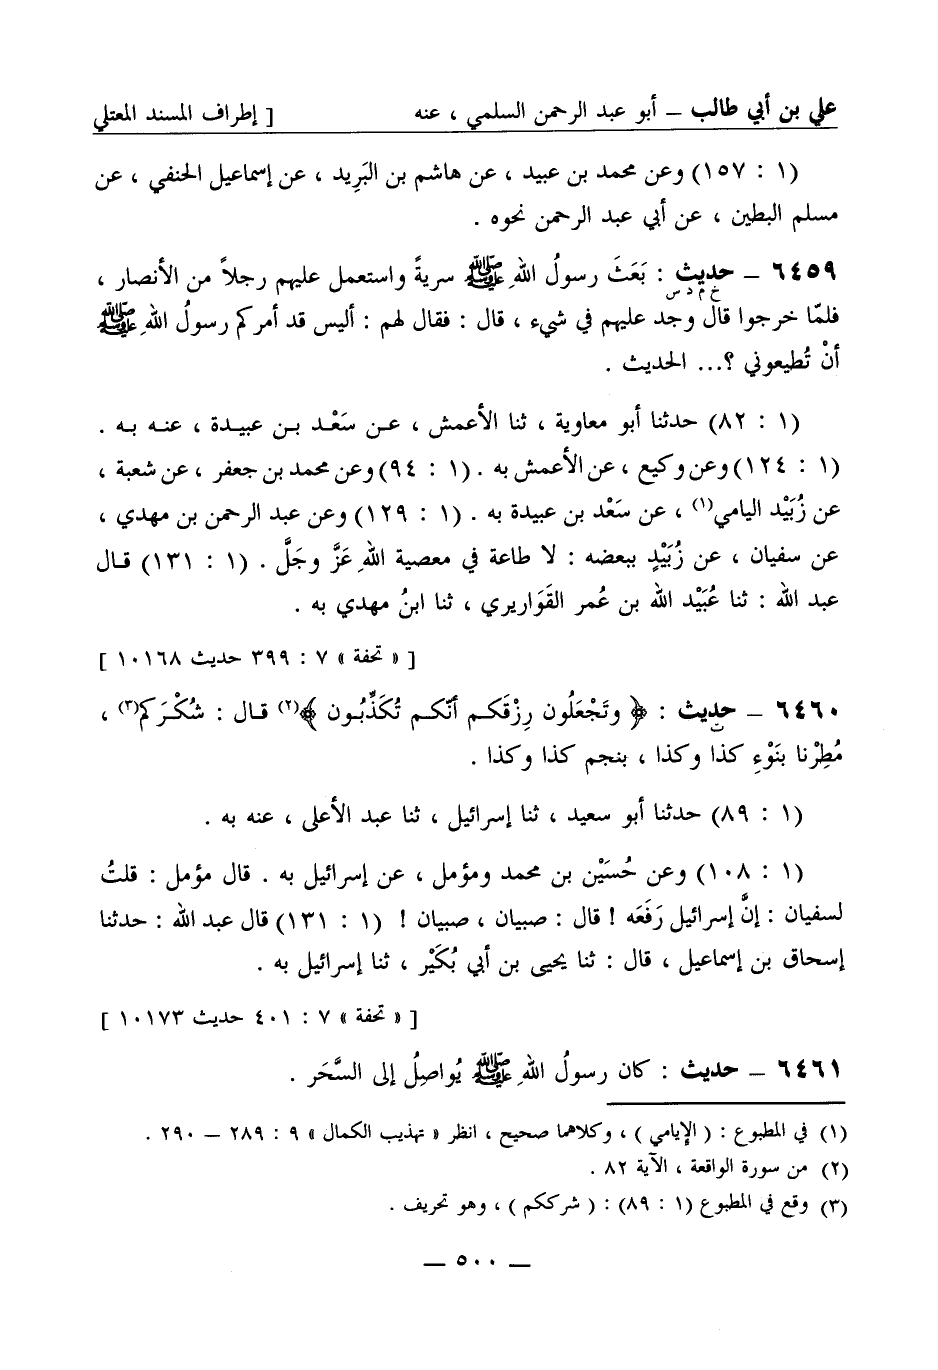 علي بن أبي طالب – أبو عبد الرحمن السلمي ، عنه [ إطراف المسند المعتلي
(١ : ١٥٧) وعن محمد بن عبيد ، عن هاشم بن البَرِيد ، عن إسماعيل الحنفي ، عن
مسلم البطين ، عن أبي عبد الرحمن نحوه .
٦٤٥٩ – حديث : بَعَثَ رسولُ اللهِ ﷺ سريةً واستعمل عليهم رجلاً من الأنصار ،
خ م د س
فلمّا خرجوا قال وجد عليهم في شيء ، قال : فقال لهم : أليس قد أمركم رسولُ اللهِ ﷺ
أنْ تُطيعوني ؟... الحديث .
(١ : ٨٢) حدثنا أبو معاوية ، ثنا الأعمش ، عن سَعْد بن عبيدة ، عنه به .
(١ : ١٢٤) وعن وكيع ، عن الأعمش به . (١ : ٩٤) وعن محمد بن جعفر ، عن شعبة ،
عن زُبَيْد اليامي(١) ، عن سَعْد بن عبيدة به . (١ : ١٢٩) وعن عبد الرحمن بن مهدي ،
عن سفيان ، عن زُبَيْدٍ ببعضه : لا طاعة في معصية اللهِ عَزَّ وجَلَّ . (١ : ١٣١) قال
عبد الله : ثنا عُبَيْد الله بن عُمر القَوَاريري ، ثنا ابنُ مهدي به .
[ « تحفة » ٧ : ٣٩٩ حديث ١٠١٦٨ ]
٦٤٦٠ – حديث : ﴿ وتَجْعَلُون رِزْقَكم أنّكم تُكَذِّبُون ﴾(٢) قال : شُكْرَكم(٣) ،
ت
مُطِرْنا بنَوْءِ كذا وكذا ، بنجم كذا وكذا .
(١ : ٨٩) حدثنا أبو سعيد ، ثنا إسرائيل ، ثنا عبد الأعلى ، عنه به .
(١ : ١٠٨) وعن حُسَيْن بن محمد ومؤمل ، عن إسرائيل به . قال مؤمل : قلتُ
لسفيان : إنَّ إسرائيل رَفَعَه ! قال : صبيان ، صبيان ! (١ : ١٣١) قال عبد الله : حدثنا
إسحاق بن إسماعيل ، قال : ثنا يحيى بن أبي بُكَيْر ، ثنا إسرائيل به .
[ « تحفة » ٧ : ٤٠١ حديث ١٠١٧٣ ]
٦٤٦١ – حديث : كان رسولُ اللهِ ﷺ يُواصِلُ إلى السَّحَر .
(١) في المطبوع : ( الإيامي ) ، وكلاهما صحيح ، انظر « تهذيب الكمال » ٩ : ٢٨٩ – ٢٩٠ .
(٢) من سورة الواقعة ، الآية ٨٢ .
(٣) وقع في المطبوع (١ : ٨٩) : ( شرككم ) ، وهو تحريف .
– ٥٠٠ –